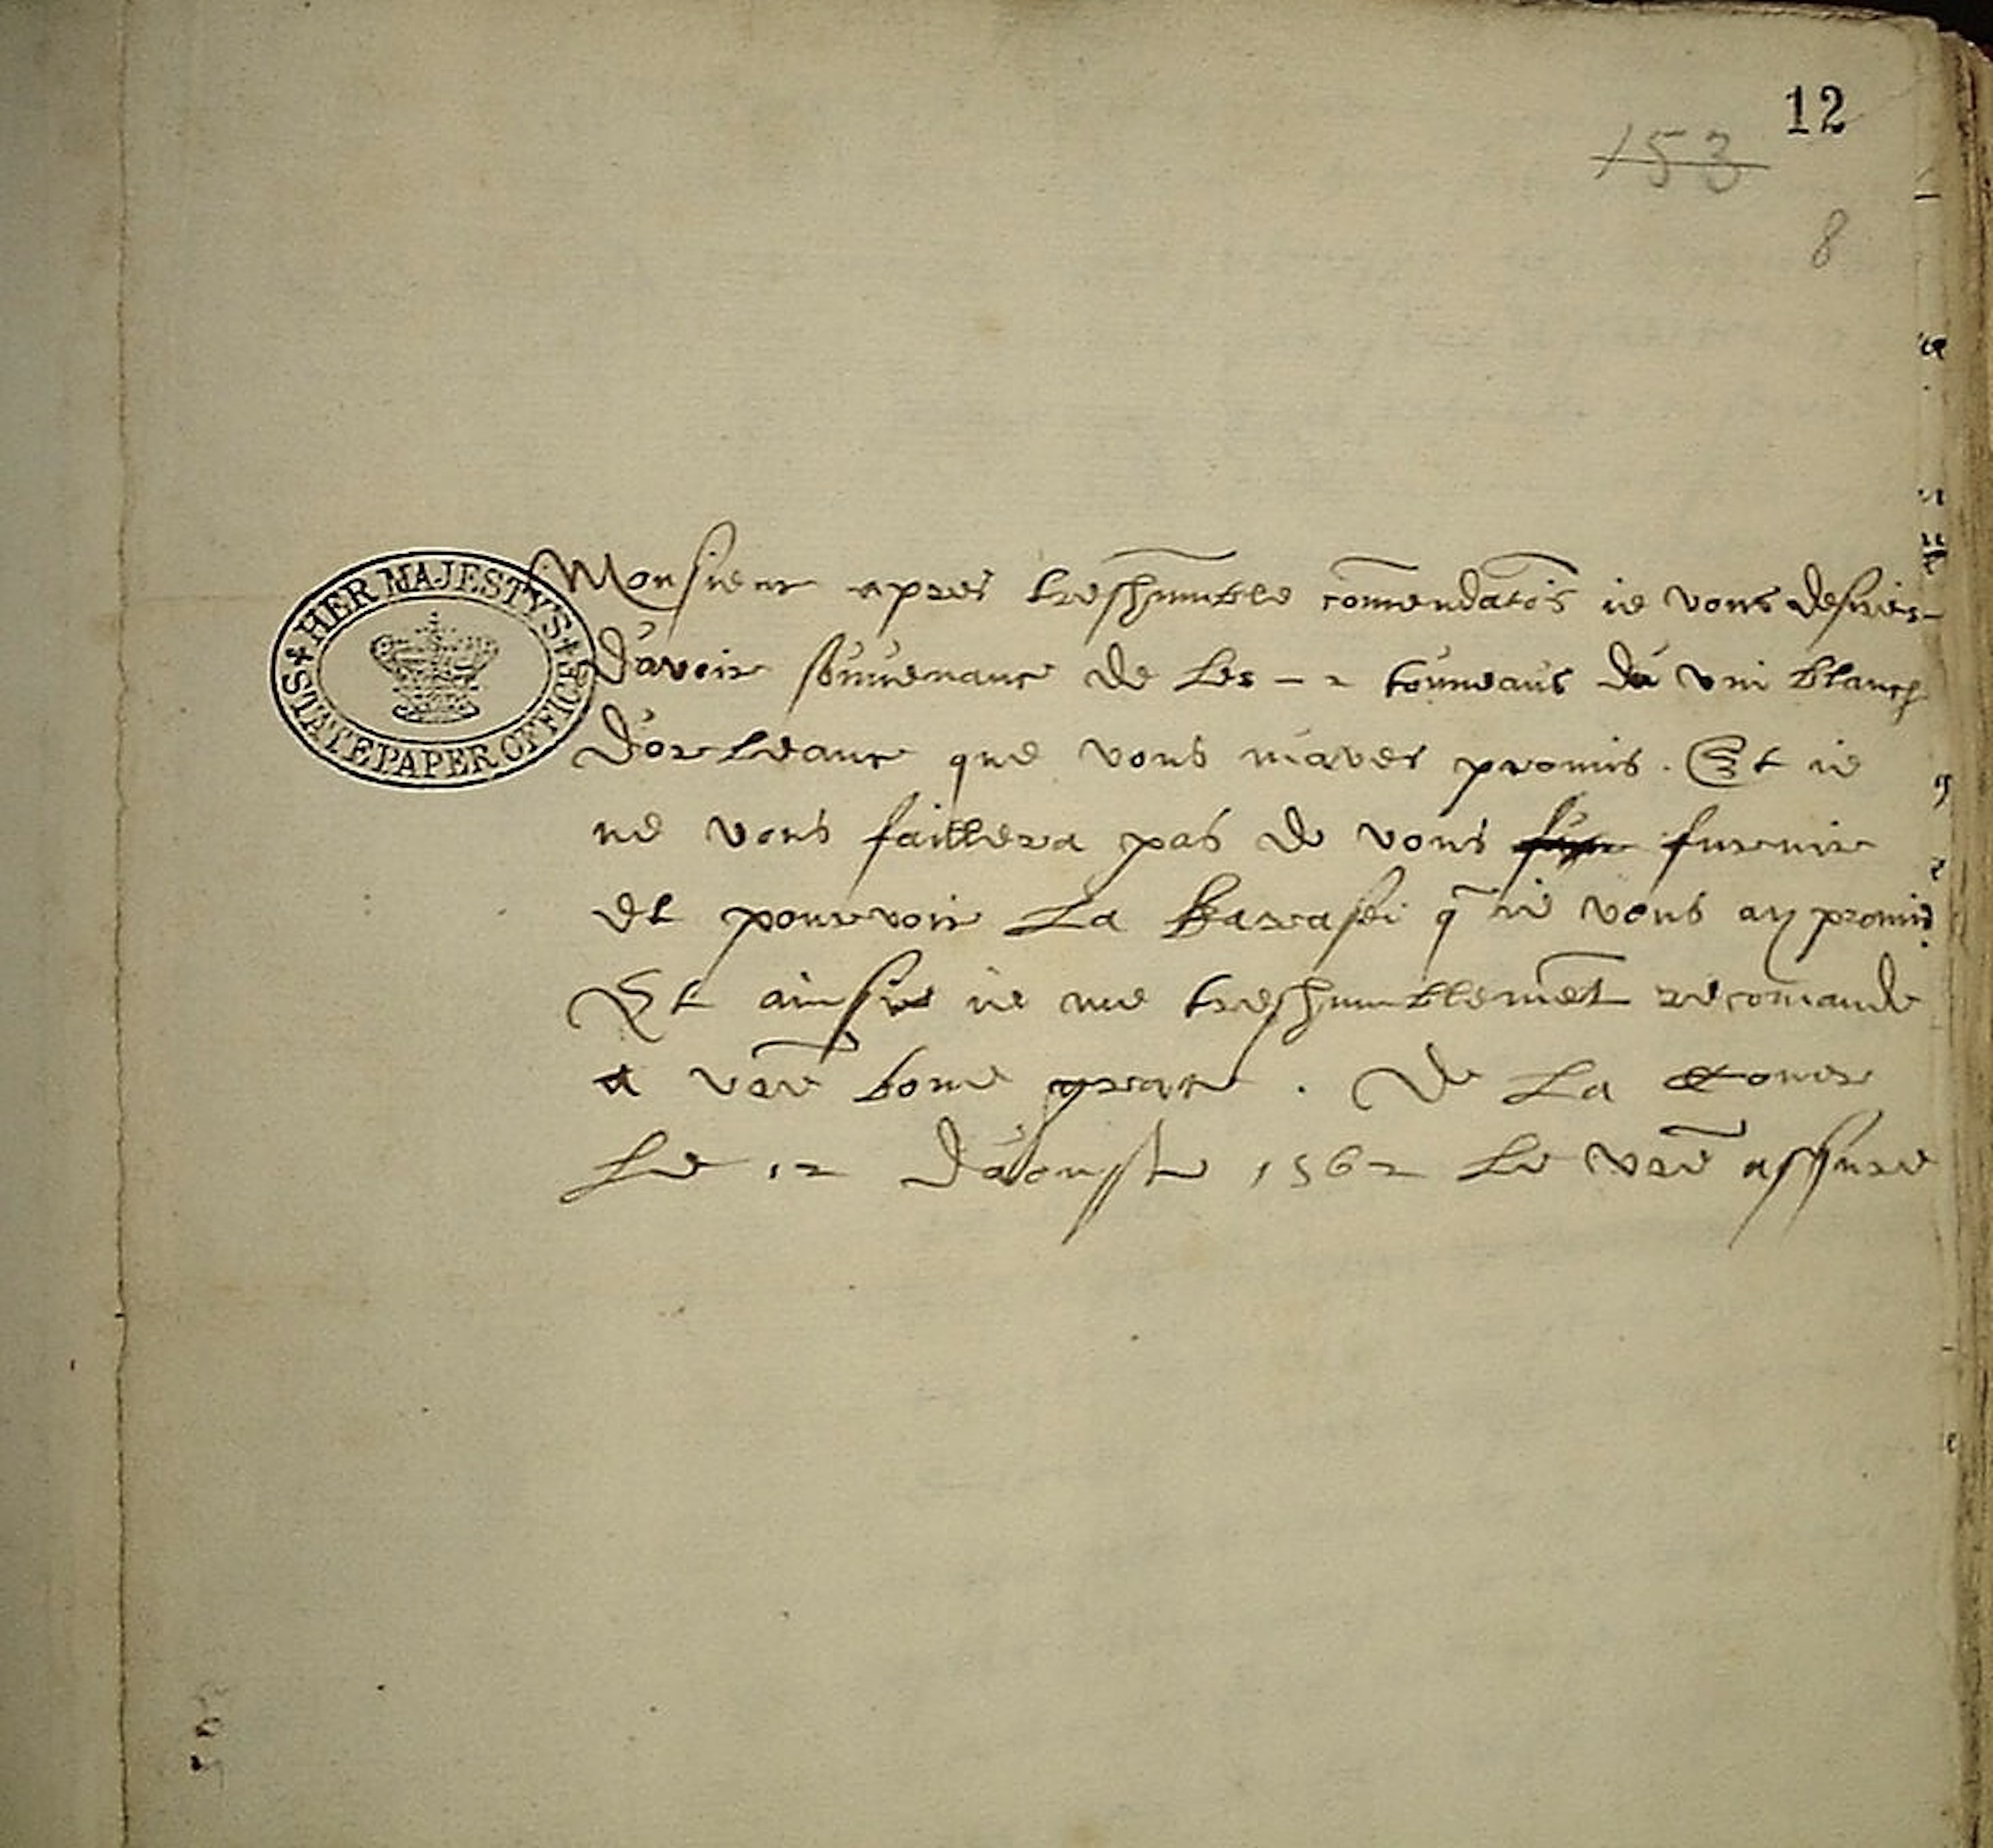 12
153
8
HER MAJESTY'S STATE PAPER OFFICE
Monsieur apres treshumble com̄endatōs ie vous desires
d'avoir souuenance de les - 2 tonneaus du vin blanch
d'orleance que vous m'aves promis. Et ie
ne vous faillera pas de vous furnir
et pourvoir la q̄ ie vous ay promis.
Et ainsie ie me treshumblemēt recomande
a vr̄e bone grace. De la Court
le 12 d'aouste 1562 le vr̄e assure